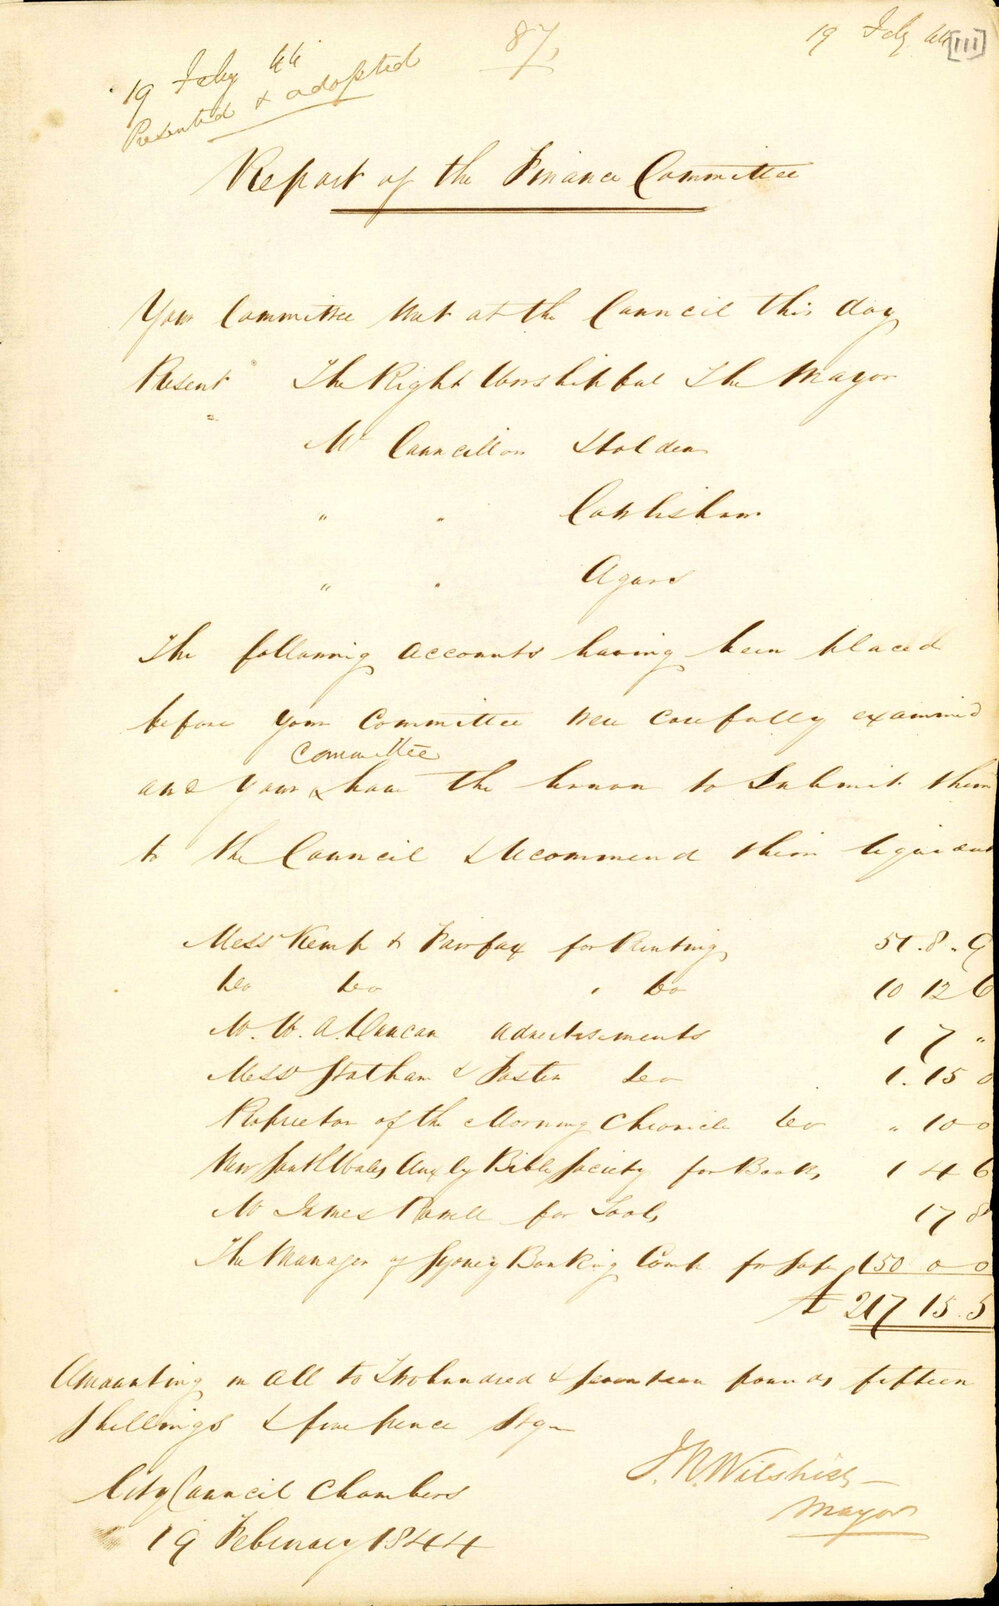 19 Feby 44 [111]
87,
19 Feby 44
Presented & adopted
Report of the Finance Committee
Your Committee met at the Council this day
Present The Right Worshipful The Mayor
Mr Councillor Holden
" " Cowlishaw
" " Agars
The following accounts having been placed
before your Committee were carefully examined
committee
and your ^ have the honor to Submit them
to the Council & Recommend them liquidated
Messrs Kemp & Fairfax for Printing 51. 8. 9
Do Do " Do 10 12 6
Mr. W. A. Duncan advertisements 1 7 "
Messrs Statham & Foster Do 1. 15 0
Proprietor of the Morning Chronicle Do " 10 0
New South Wales Auxly Bible Society for Books 1 4 6
Mr James Powell for Tools 17 8
The Manager of Sydney Banking Comp for Safe 150 0 0
£ 217 15. 5
Amounting in all to Two hundred & seventeen pounds fifteen
shillings & five pence Stg
J. R. Wilshire
Mayor
City Council Chambers
19 February 1844